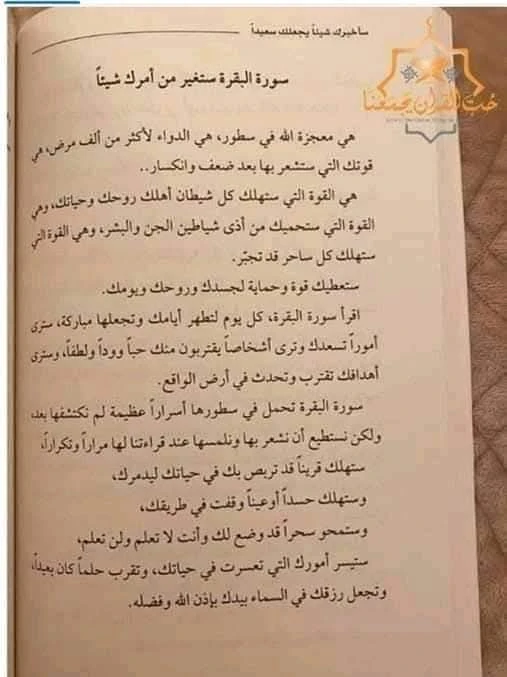 سأخبرك شيئاً يجعلك سعيداً
حب القرآن يجمعنا
سورة البقرة ستغير من أمرك شيئاً
هي معجزة الله في سطور، هي الدواء لأكثر من ألف مرض، هي
قوتك التي ستشعر بها بعد ضعف وانكسار..
هي القوة التي ستهلك كل شيطان أهلك روحك وحياتك، وهي
القوة التي ستحميك من أذى شياطين الجن والبشر، وهي القوة التي
ستهلك كل ساحر قد تجبّر.
ستعطيك قوة وحماية لجسدك وروحك ويومك.
اقرأ سورة البقرة، كل يوم لتطهر أيامك وتجعلها مباركة، سترى
أموراً تسعدك وترى أشخاصاً يقتربون منك حباً ووداً ولطفاً، وسترى
أهدافك تقترب وتحدث في أرض الواقع.
سورة البقرة تحمل في سطورها أسراراً عظيمة لم نكتشفها بعد،
ولكن نستطيع أن نشعر بها ونلمسها عند قراءتنا لها مراراً وتكراراً،
ستهلك قريناً قد تربص بك في حياتك ليدمرك،
وستهلك حسداً أوعيناً وقفت في طريقك،
وستمحو سحراً قد وضع لك وأنت لا تعلم ولن تعلم،
ستيسر أمورك التي تعسرت في حياتك، وتقرب حلماً كان بعيداً،
وتجعل رزقك في السماء بيدك بإذن الله وفضله.